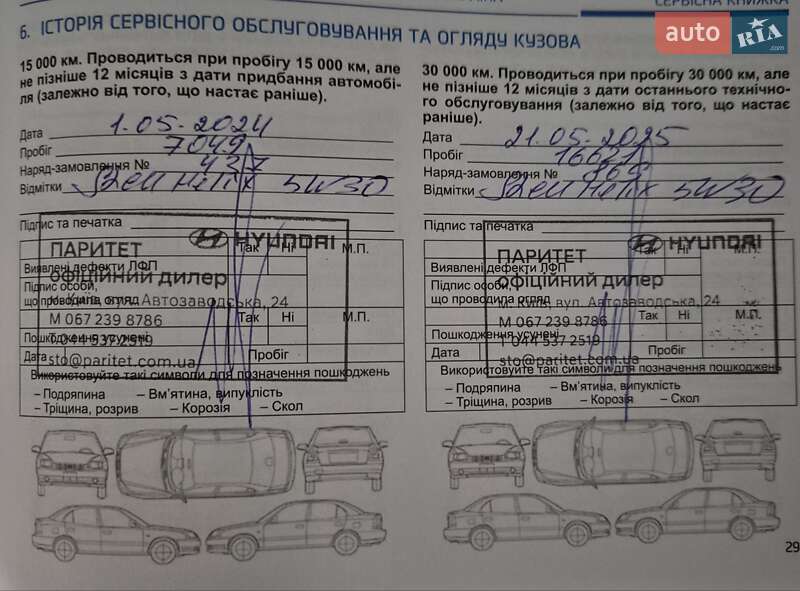 СЕРВІСНА КНИЖКА
auto RIA.com
6. ІСТОРІЯ СЕРВІСНОГО ОБСЛУГОВУВАННЯ ТА ОГЛЯДУ КУЗОВА
15 000 км. Проводиться при пробігу 15 000 км, але
не пізніше 12 місяців з дати придбання автомобі-
ля (залежно від того, що настає раніше).
Дата 1.05.2024
Пробіг 7049
Наряд-замовлення № 437
Відмітки Helix 5W30
Підпис та печатка
ПАРИТЕТ HYUNDAI
Так Ні М.П.
Виявлені дефекти ЛФП
ОФІЦІЙНИЙ ДИЛЕР
Підпис особи,
що проводила огляд
м. Київ, вул. Автозаводська, 24
М 067 239 8786
Так Ні М.П.
Пошкодження усунені
Т 044 537 2519
Дата Пробіг
sto@paritet.com.ua
Використовуйте такі символи для позначення пошкоджень
– Подряпина – Вм'ятина, випуклість
– Тріщина, розрив – Корозія – Скол
30 000 км. Проводиться при пробігу 30 000 км, але
не пізніше 12 місяців з дати останнього технічно-
го обслуговування (залежно від того, що настає
раніше).
Дата 21.05.2025
Пробіг 16621
Наряд-замовлення № 865
Відмітки Helix 5W30
Підпис та печатка
ПАРИТЕТ HYUNDAI
Так Ні М.П.
Виявлені дефекти ЛФП
ОФІЦІЙНИЙ ДИЛЕР
Підпис особи,
що проводила огляд
м. Київ, вул. Автозаводська, 24
М 067 239 8786
Так Ні М.П.
Пошкодження усунені
Т 044 537 2519
Дата Пробіг
sto@paritet.com.ua
Використовуйте такі символи для позначення пошкоджень
– Подряпина – Вм'ятина, випуклість
– Тріщина, розрив – Корозія – Скол
29